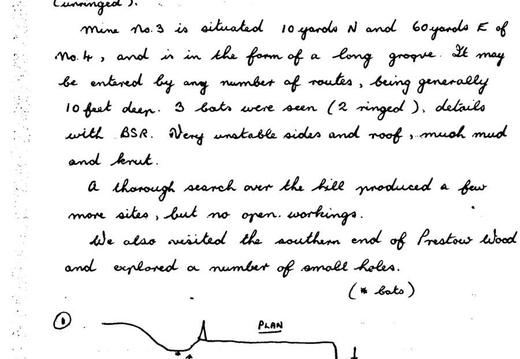 (unringed).
Mine No.3 is situated 10 yards N and 60 yards E of
No.4, and is in the form of a long groove. It may
be entered by any number of routes, being generally
10 feet deep. 3 bats were seen (2 ringed), details
with BSR. Very unstable sides and roof, much mud
and krut.
A thorough search over the hill produced a few
more sites, but no open workings.
We also visited the southern end of Prestow Wood
and explored a number of small holes.
(* bats)
① PLAN
* *